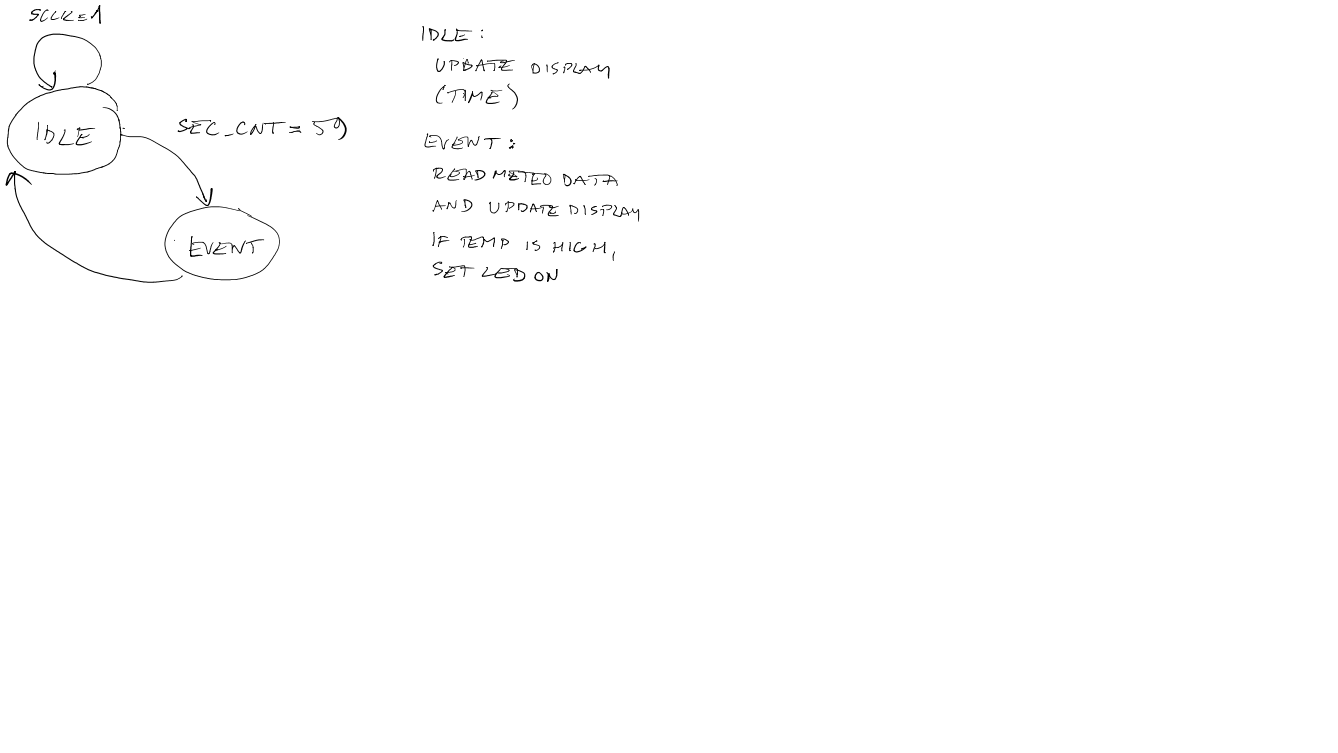 SCLK=1
IDLE
SEC_CNT = 59
EVENT
IDLE:
UPDATE DISPLAY
(TIME)
EVENT:
READ METEO DATA
AND UPDATE DISPLAY
IF TEMP IS HIGH,
SET LED ON